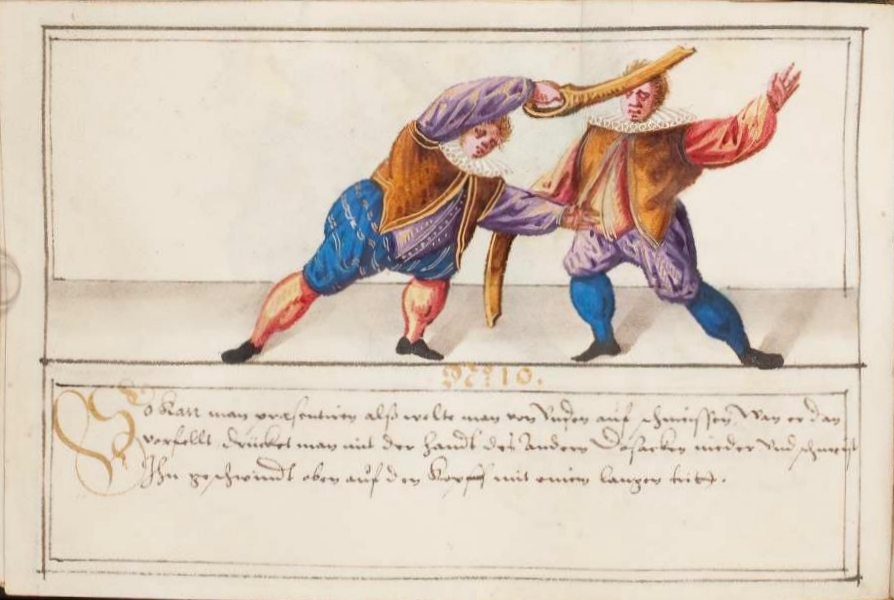 No 10.
So Kan man præsentiren alß wolte man von Unden auf schmeissen, Wan er dan
vorfellt drücket man mit der handt des Andern Dosacken nieder Und schmeist
Ihn geschwindt oben auf den Kopff mit einem langen tritt.